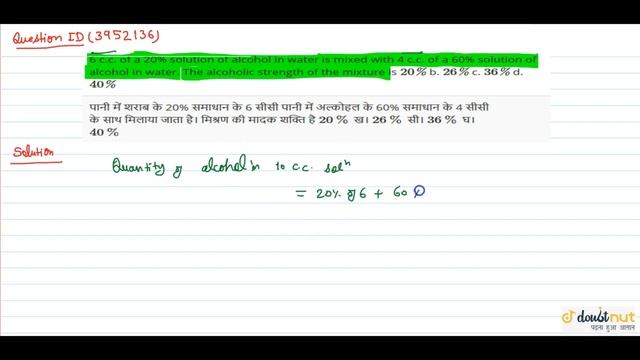 Question ID (3952136)
6 c.c. of a 20% solution of alcohol in water is mixed with 4 c.c. of a 60% solution of
alcohol in water. The alcoholic strength of the mixture is 20% b. 26% c. 36% d.
40%
पानी में शराब के 20% समाधान के 6 सीसी पानी में अल्कोहल के 60% समाधान के 4 सीसी
के साथ मिलाया जाता है। मिश्रण की मादक शक्ति है 20 % ख। 26 % सी। 36 % घ।
40 %
Solution
Quantity of alcohol in 10 c.c. solⁿ
= 20% of 6 + 60
doubtnut
पढ़ना हुआ आसान